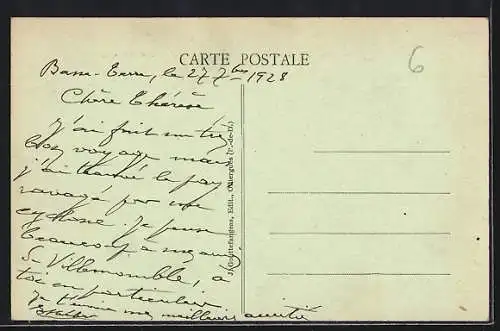 CARTE POSTALE
6
Basse-Terre, le 27 7bre 1928
Chère Thérèse
J'ai fait un très
bon voyage mais
j'ai trouvé le pays
ravagé par un
cyclone. Je pense
beaucoup à mes amis
de Villemomble, à
toi en particulier
Je t'envoie mes meilleures amitiés
J. Gouttefangeas, Edit., Olliergues (P.-de-D.)